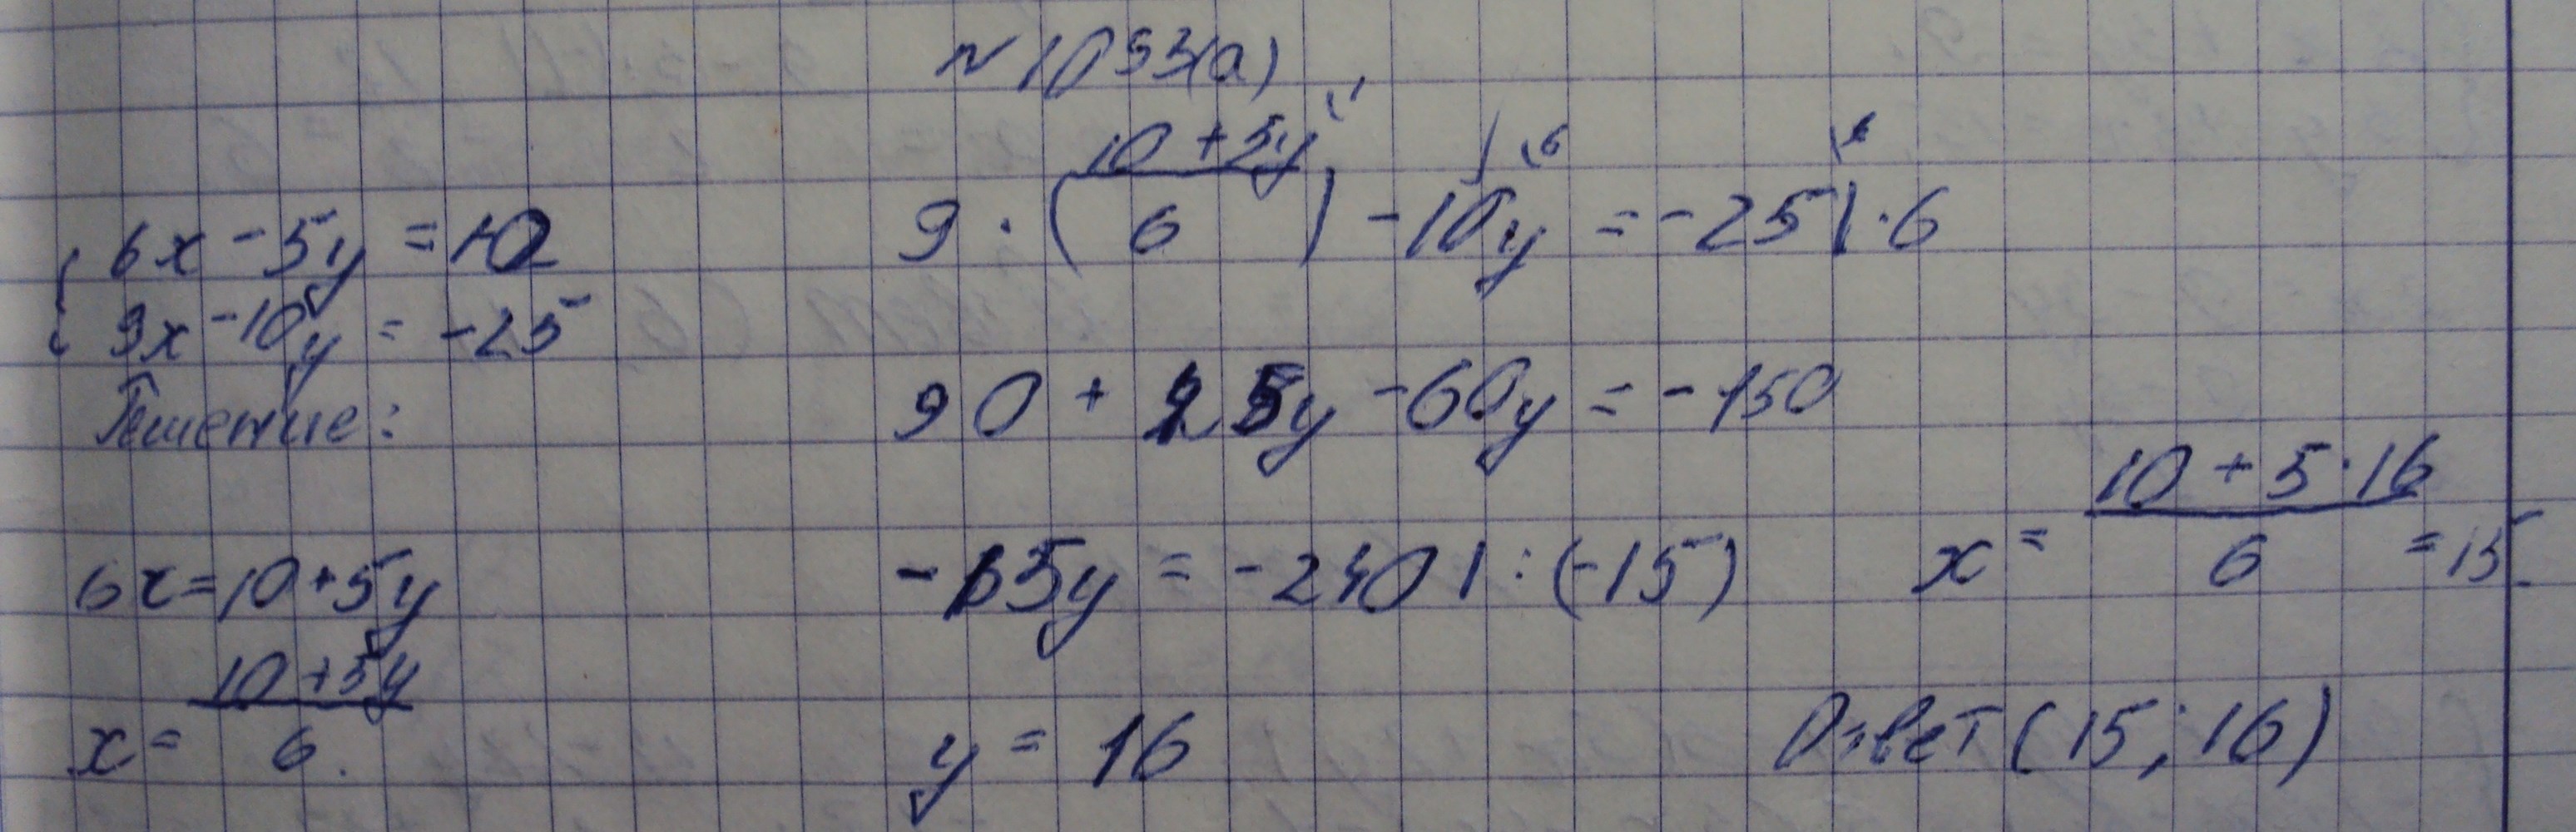 №1093(а)
{ 6x - 5y = 10
9x - 10y = -25
Решение:
6x = 10 + 5y
x = (10 + 5y)/6.
9 · ((10 + 5y)/6) - 10y = -25 | · 6
90 + 45y - 60y = -150
-15y = -240 | : (-15)
y = 16
x = (10 + 5 · 16)/6 = 15.
Ответ (15; 16)